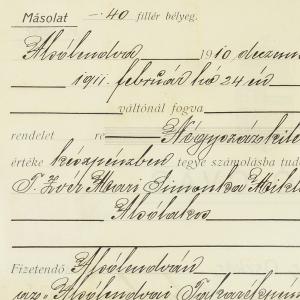 Másolat — 40 fillér bélyeg.
Alsólendva 1910 decem
1911. február hó 24 én
váltónál fogva
rendelet re Négyszázkile
értéke készpénzben tegye számolásba tud
T. Zvér Mari Simonka Mikl
Alsólakos
Fizetendő Alsólendván
Alsólendvai Takarékpén